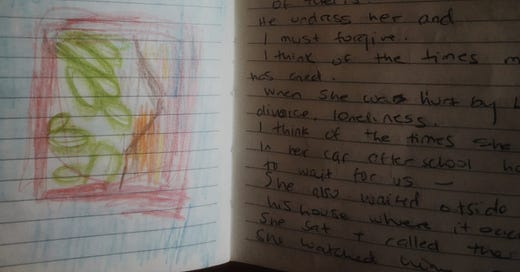 of
He undress her and
I must forgive.
I think of the times m
has cried.
When she was hurt by
divorce, loneliness.
I think of the times she
In her car after school ha
to wait for us —
She also waited otside
his house where it occu
She sat + called the
She watched